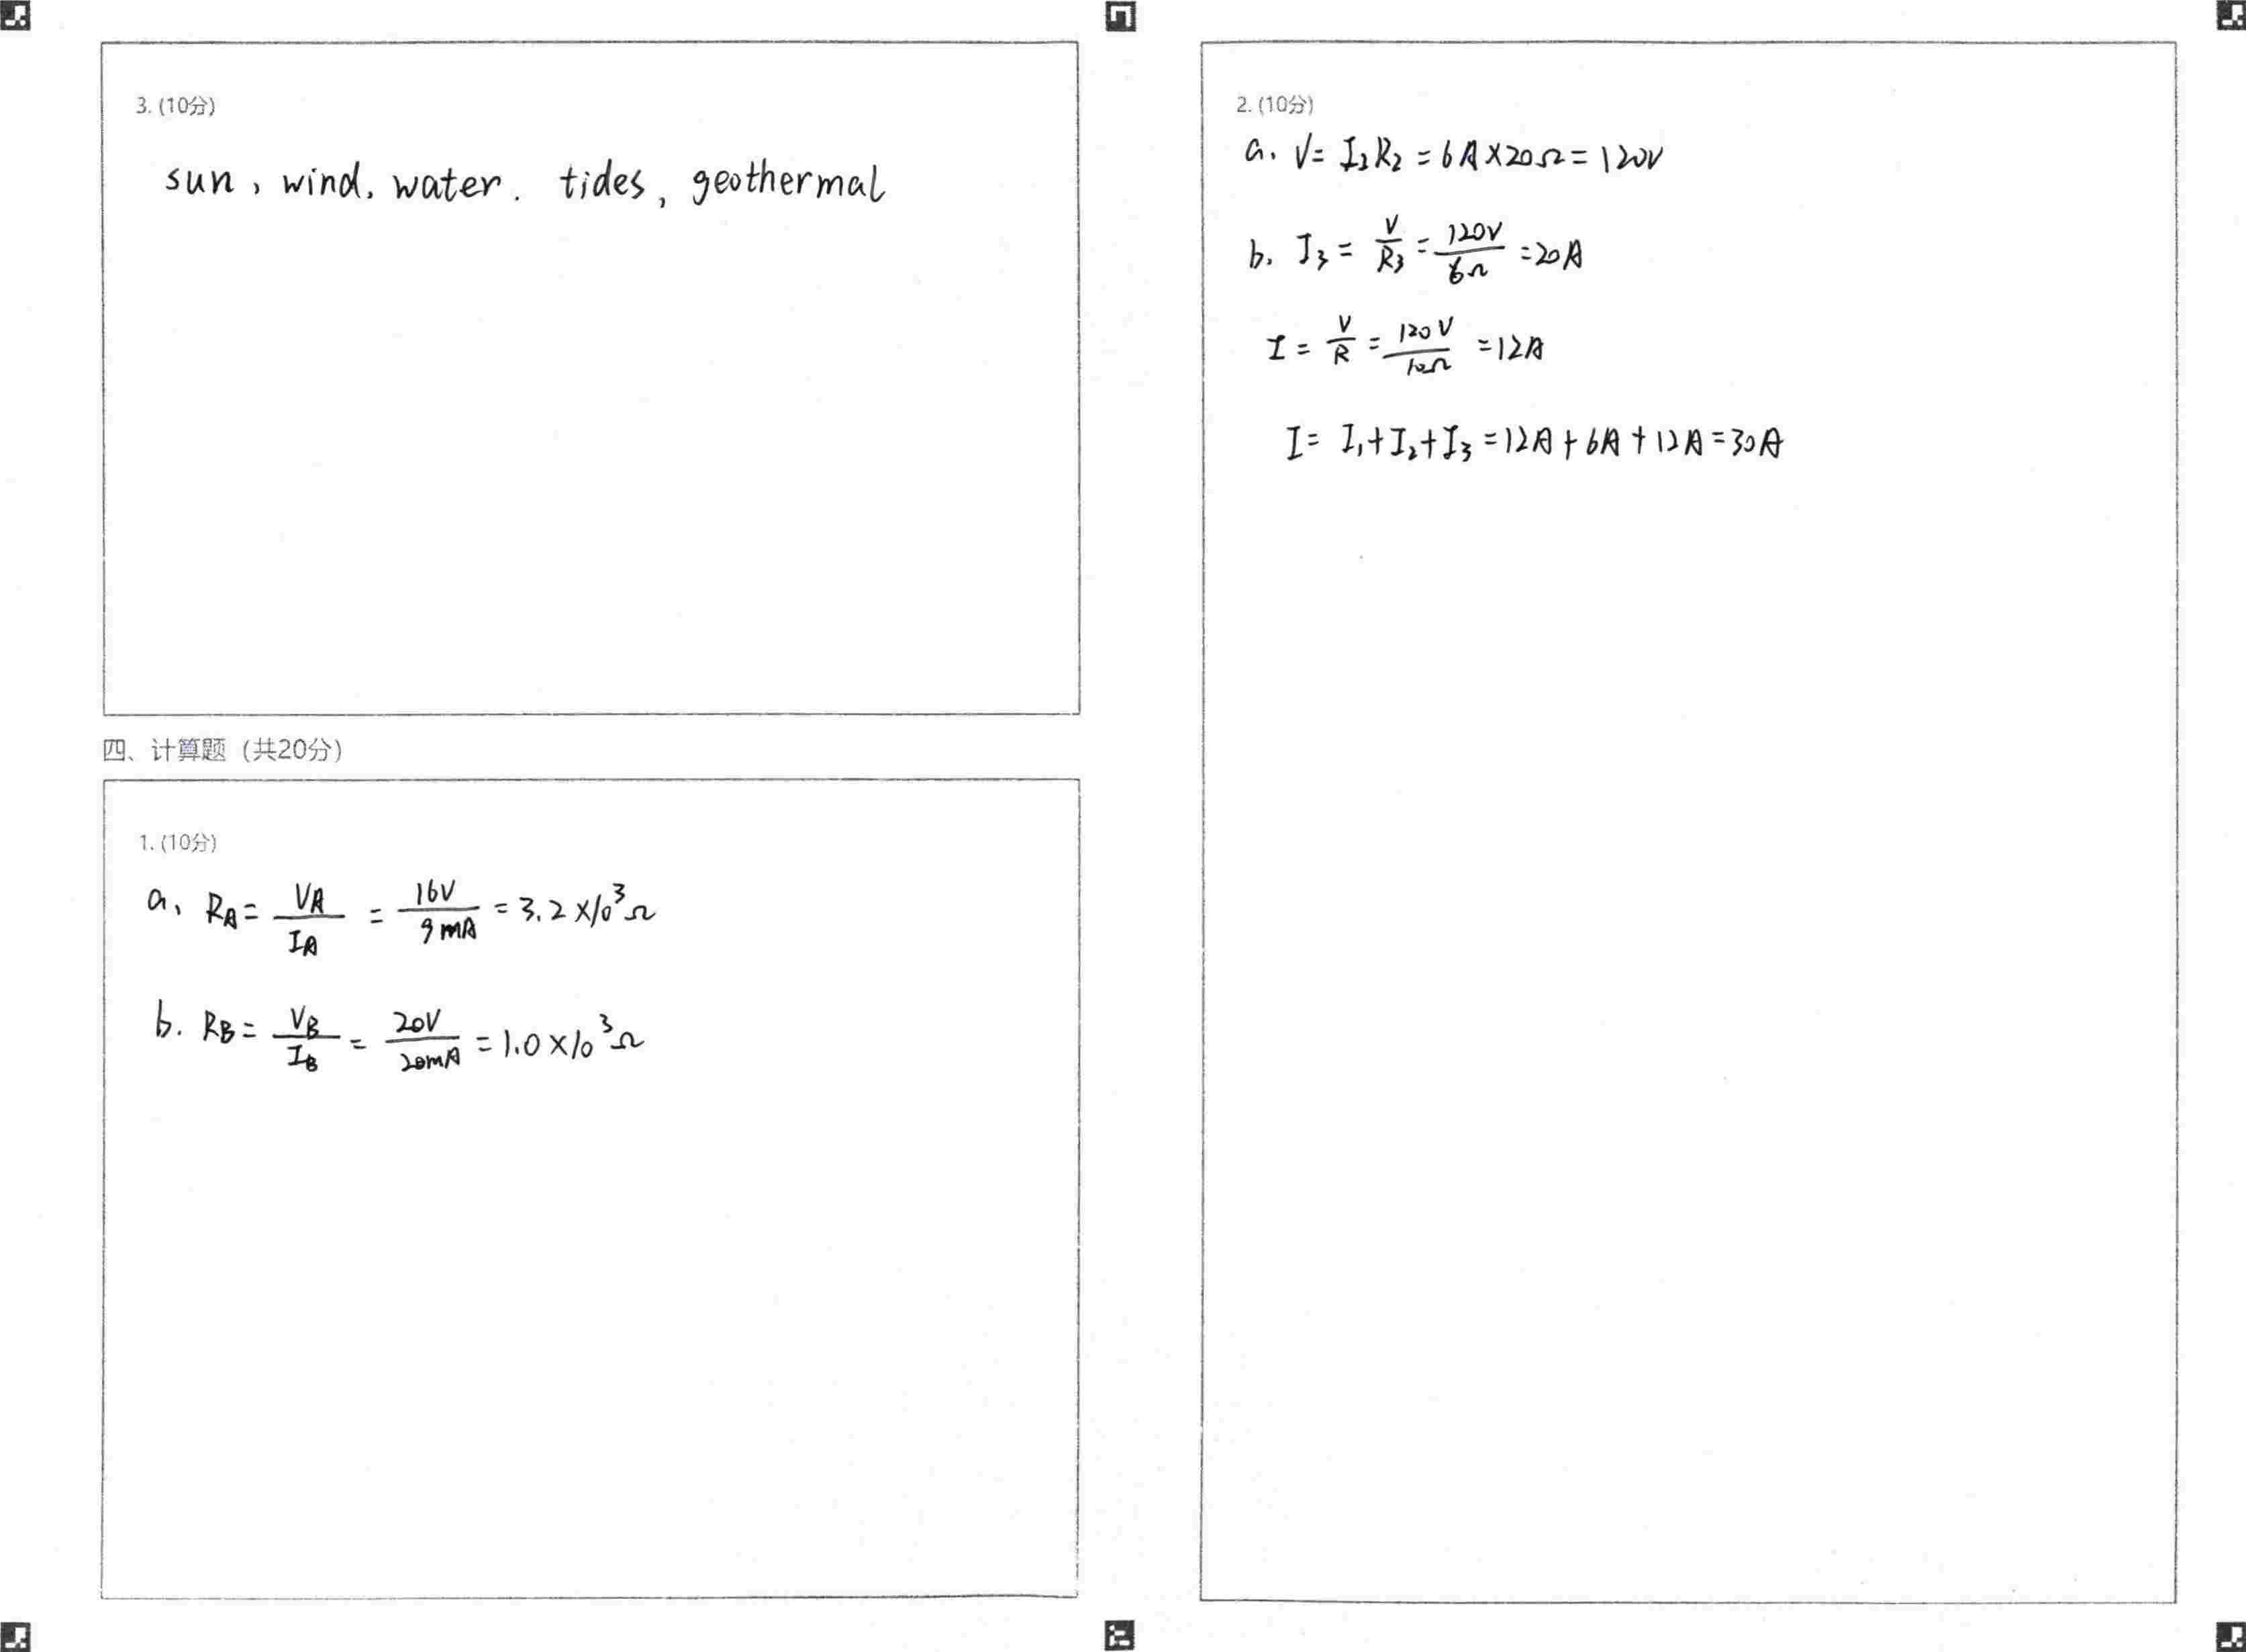 3. (10分)
sun, wind, water. tides, geothermal
四、计算题（共20分）
1. (10分)
a、 RA = VA / IA = 16V / 9mA = 3.2 ×10³ Ω
b. RB = VB / IB = 20V / 20mA = 1.0 ×10³ Ω
2. (10分)
a、 V = I₂R₂ = 6A × 20Ω = 120V
b、 I₃ = V / R₃ = 120V / 6Ω = 20A
I = V / R = 120V / 10Ω = 12A
I = I₁ + I₂ + I₃ = 12A + 6A + 12A = 30A